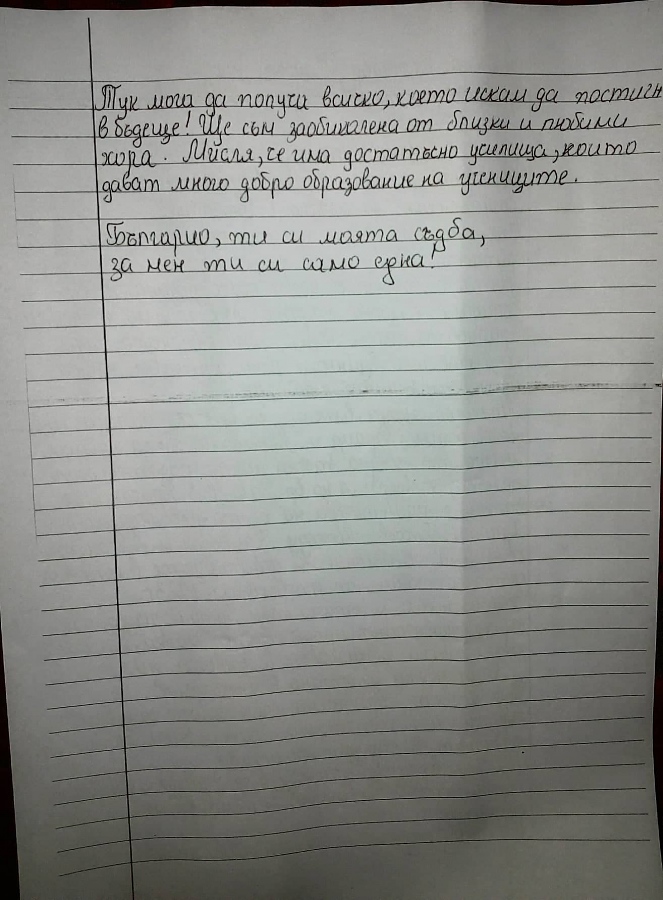 Тук мога да получа всичко, което искам да постигн
в бъдеще! Ще съм заобиколена от близки и любими
хора. Мисля, че има достатъчно училища, които
дават много добро образование на учениците.
Българио, ти си моята съдба,
за мен ти си само една!